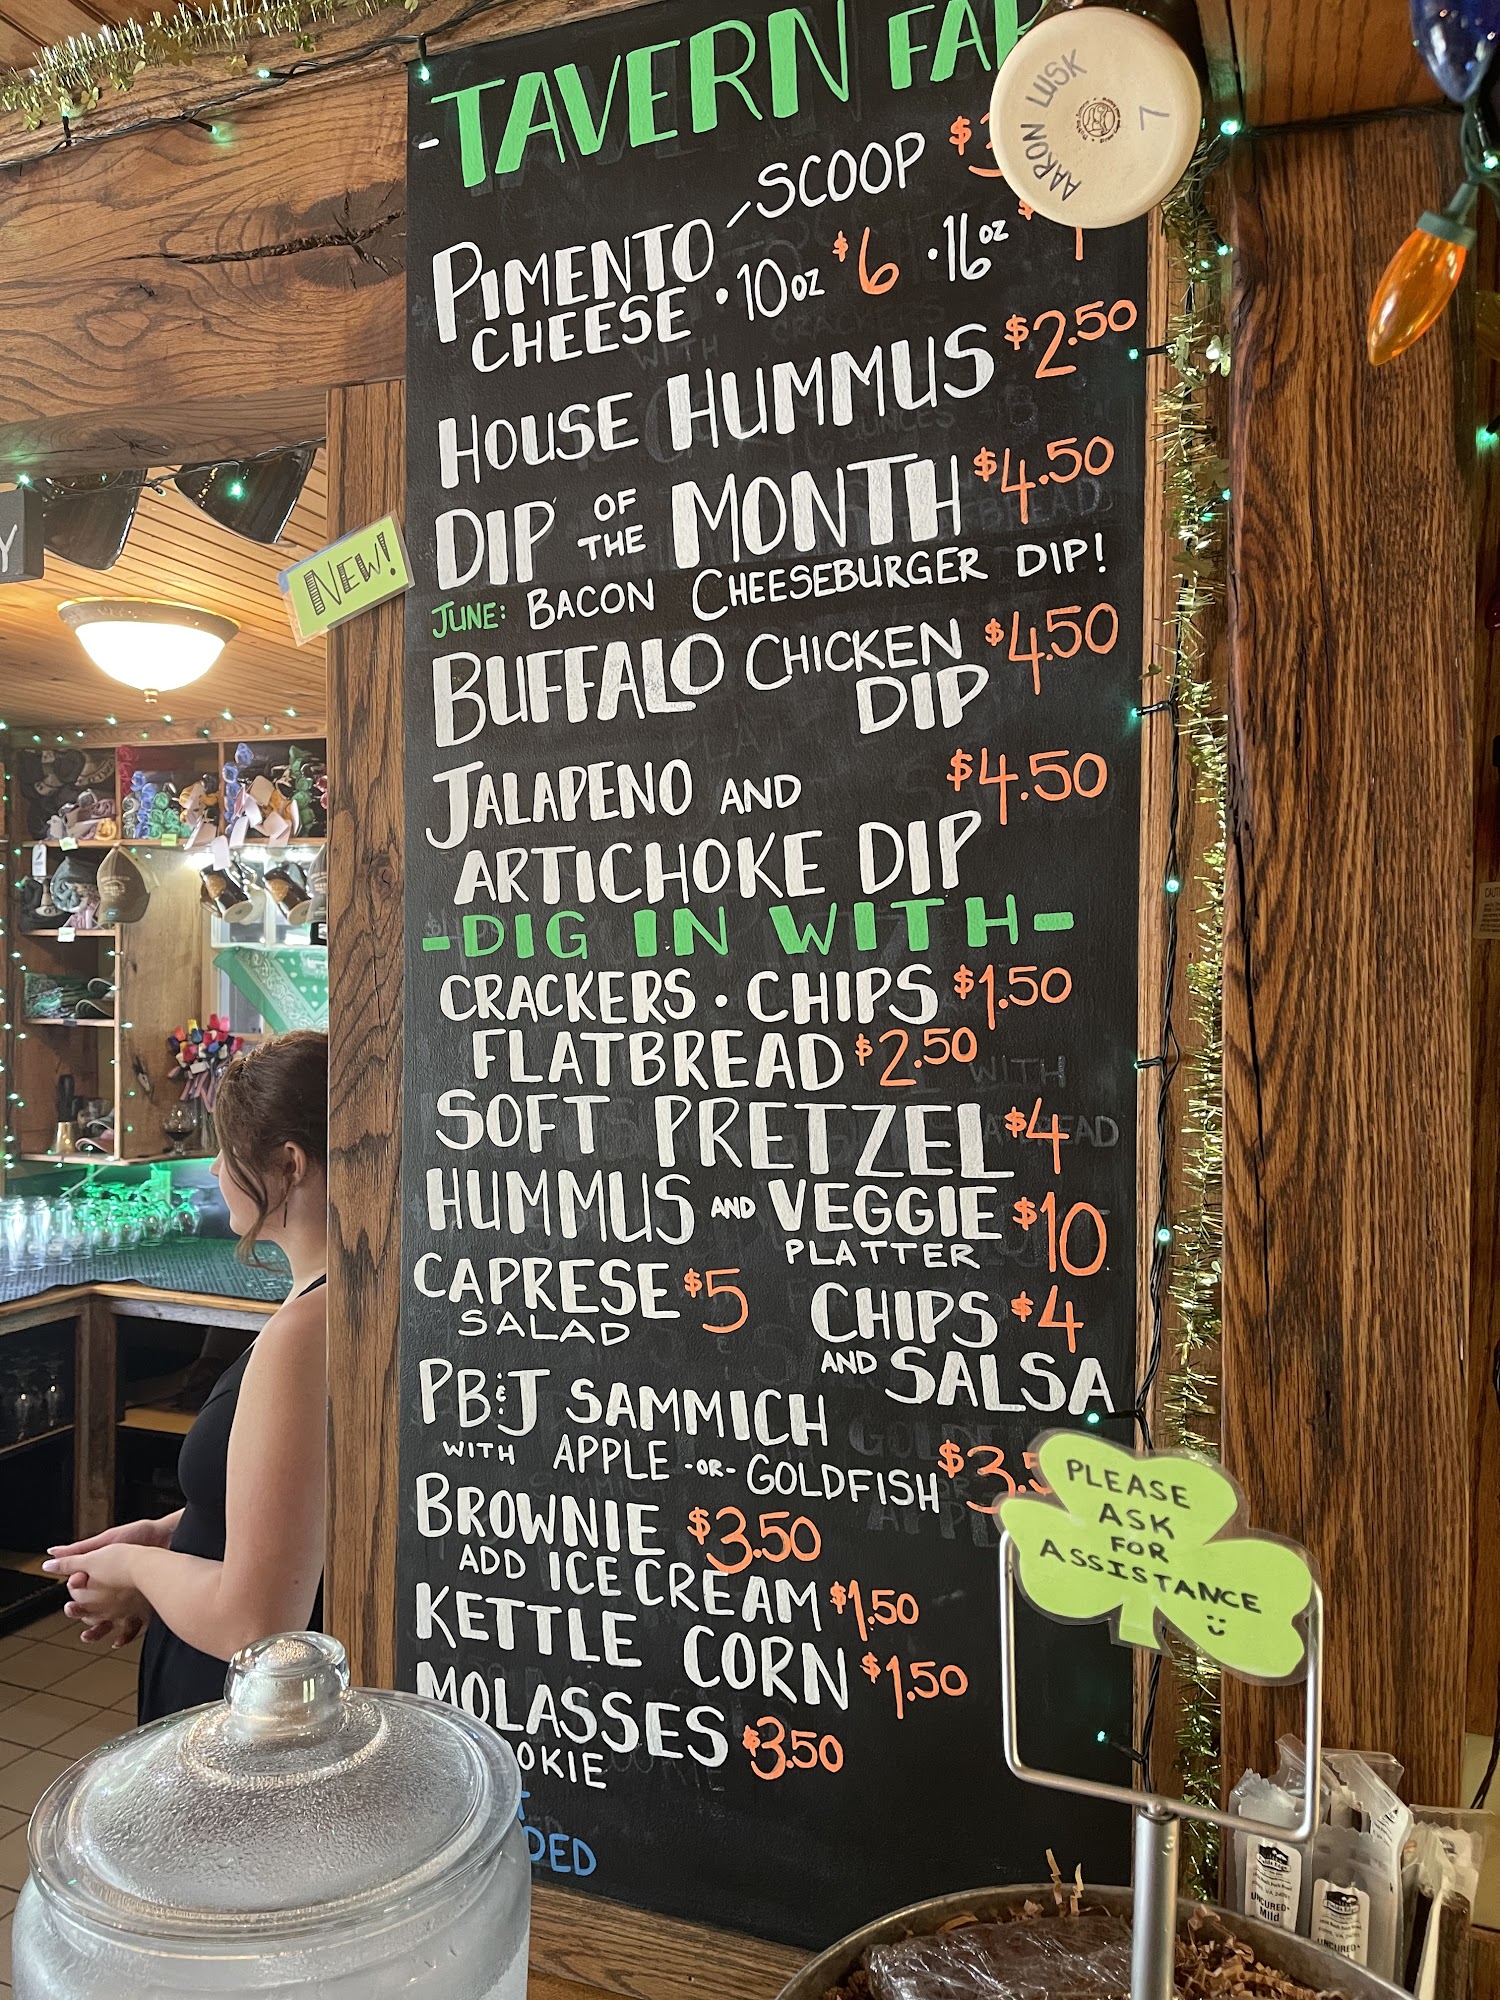 -TAVERN
SCOOP $
PIMENTO
CHEESE • 10oz $6 • 16oz $
HOUSE HUMMUS $2.50
DIP OF THE MONTH $4.50
JUNE: BACON CHEESEBURGER DIP!
NEW!
BUFFALO CHICKEN $4.50
DIP
JALAPENO AND $4.50
ARTICHOKE DIP
-DIG IN WITH-
CRACKERS • CHIPS $1.50
FLATBREAD $2.50
SOFT PRETZEL $4
HUMMUS AND VEGGIE $10
PLATTER
CAPRESE $5
SALAD
CHIPS $4
AND SALSA
PB&J SAMMICH
WITH APPLE -OR- GOLDFISH $3.5
BROWNIE $3.50
ADD ICE CREAM $1.50
KETTLE CORN $1.50
MOLASSES $3.50
OKIE
DED
AARON LUSK
7
PLEASE
ASK
FOR
ASSISTANCE
UNCURED
Mild
UNCURED